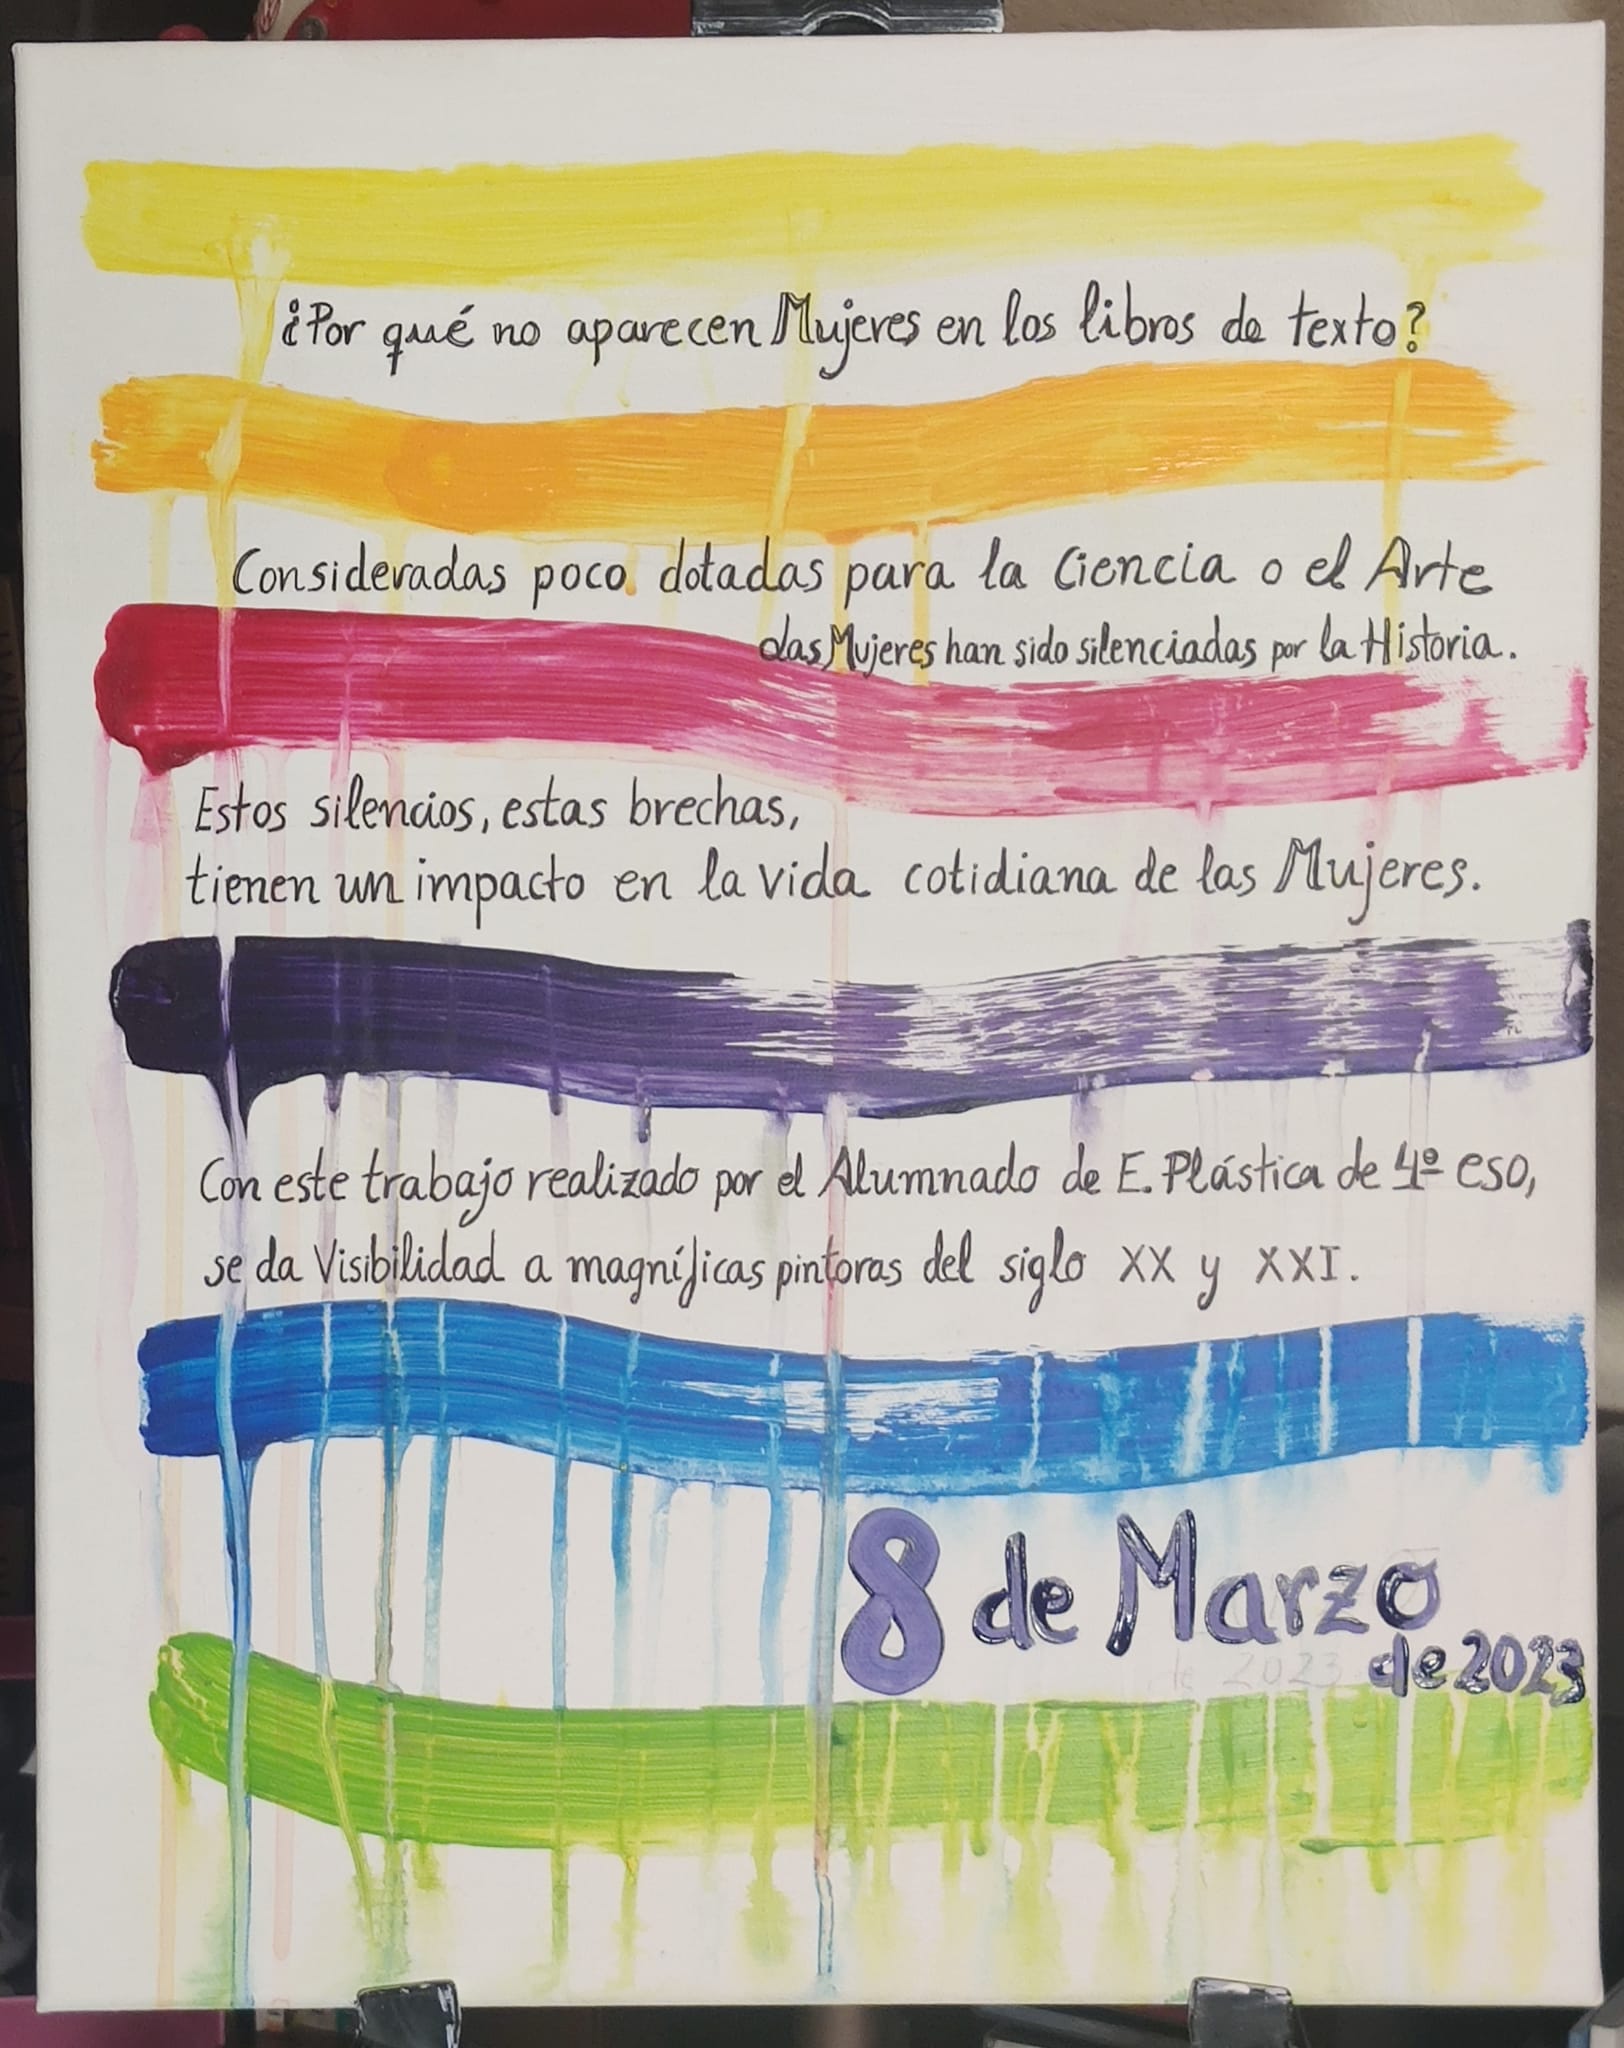 ¿Por qué no aparecen Mujeres en los libros de texto?
Consideradas poco dotadas para la Ciencia o el Arte
las Mujeres han sido silenciadas por la Historia.
Estos silencios, estas brechas,
tienen un impacto en la vida cotidiana de las Mujeres.
Con este trabajo realizado por el Alumnado de E. Plástica de 4º ESO,
se da Visibilidad a magníficas pintoras del siglo XX y XXI.
8 de Marzo
de 2023